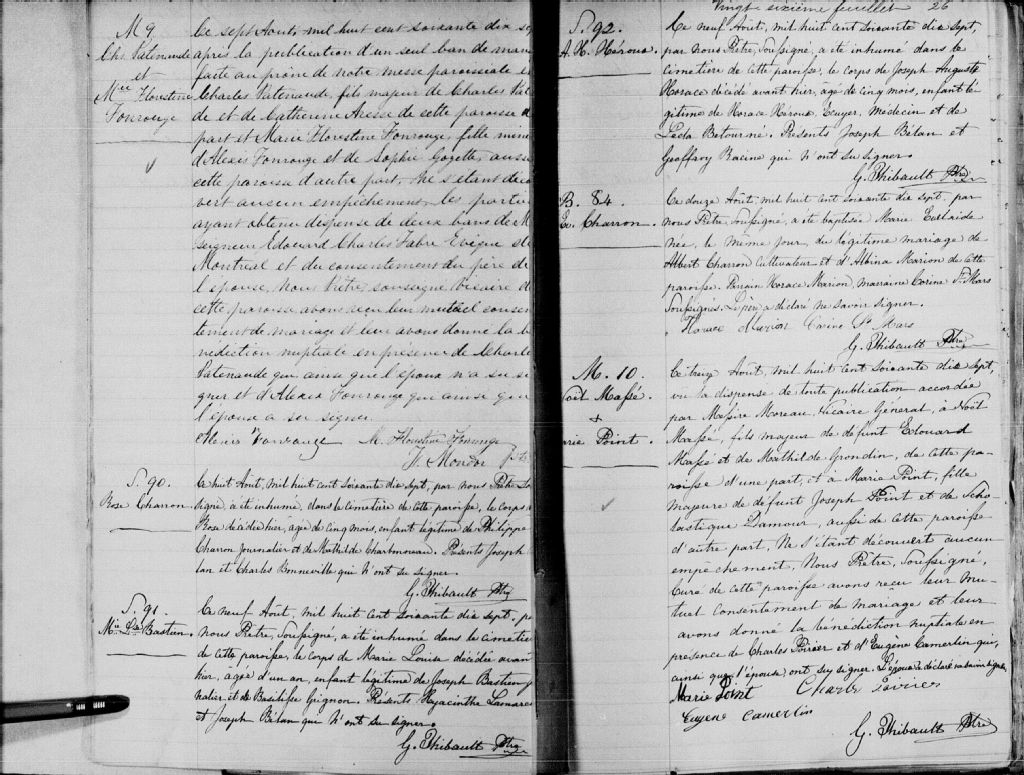 M 9
Chs Patenaude
et
Mie Florestine
Fonrouge
Le sept Août, mil huit cent soixante dix se
après la publication d'un seul ban de maria
faite au prône de notre messe paroissiale e
Charles Patenaude, fils majeur de Charles Pate
de et de Catherine Aresse de cette paroisse d'
part et Marie Florestine Fonrouge, fille mine
d'Alexis Fonrouge et de Sophie Goyette, aussi
cette paroisse d'autre part, Ne s'étant décou
vert aucun empêchement, les parties
ayant obtenu dispense de deux bans de M
seigneur Edouard Charles Fabre Evêque de
Montréal et du consentement du père de
l'épouse, nous Prêtre soussigné, vicaire de
cette paroisse avons reçu leur mutuel consen
tement de mariage et leur avons donné la bé
nédiction nuptiale en présence de Charles
Patenaude qui ainsi que l'époux n'a su si
gner et d'Alexis Fonrouge qui ainsi que
l'épouse a su signer.
Alexis Fonrouge M. Florestine Fonrouge
J. Mondor ptre
S. 90.
Rose Charron
Ce huit Août, mil huit cent soixante dix sept, par nous Prêtre So
signé, a été inhumé, dans le cimetière de cette paroisse, le corps
Rose décédée hier, agée de cinq mois, enfant légitime de Philippe
Charron Journalier et de Mathilde Charbonneau. Présents Joseph
lan et Charles Bonneville qui n'ont su signer.
G. Thibault Ptre
S. 91.
Mie Lse Bastien
Ce neuf Août, mil huit cent soixante dix sept, p
nous Prêtre, Soussigné, a été inhumé dans le cimetiè
de cette paroisse, le corps de Marie Louise décédée avan
hier, âgée d'un an, enfant légitime de Joseph Bastien J
nalier et de Basilisse Grignon. Présents Hyacinthe Lamarc
et Joseph Bélan qui n'ont su signer.
G. Thibault Ptre
Vingt sixième feuillet 26
S. 92.
A. H. Héroux.
Ce neuf Août, mil huit cent soixante dix sept,
par nous Prêtre, Soussigné, a été inhumé dans le
cimetière de cette paroisse, le corps de Joseph Auguste
Horace décédé avant hier, agé de cinq mois, enfant lé
gitime de Horace Héroux Ecuyer, Médecin et de
Léda Betourné. Présents Joseph Bélan et
Geoffroy Racine qui n'ont su signer.
G. Thibault Ptre
B. 84.
Ex. Charron.
Ce douze Août, mil huit cent soixante dix sept, par
nous Prêtre Soussigné, a été baptisée Marie
née, le même jour, du légitime mariage de
Albert Charron cultivateur et d'Albina Marion de cette
paroisse. Parrain Horace Marion, marraine Corine St Mars
Soussignés. Le père a déclaré ne savoir signer.
Horace Marion Corine St Mars
G. Thibault Ptre
M. 10.
Noël Massé
&
Marie Point.
Ce treize Août, mil huit cent soixante dix sept,
vu la dispense de toute publication accordée
par Messire Moreau, Vicaire Général, à Noël
Massé, fils majeur de défunt Edouard
Massé et de Mathilde Grondin, de cette pa-
roisse d'une part, et à Marie Point, fille
majeure de défunt Joseph Point et de Scho
lastique Lamour, aussi de cette paroisse
d'autre part, Ne s'étant découvert aucun
empêchement, Nous Prêtre, Soussigné,
Curé de cette paroisse avons reçu leur mu-
tuel consentement de mariage et leur
avons donné la bénédiction nuptiale en
presence de Charles Poirier et d'Eugène Camerlin qui,
ainsi que l'épouse, ont su signer. L'époux a déclaré ne savoir signer.
Marie Point Charle Poirier
Eugene Camerlin
G. Thibault Ptre